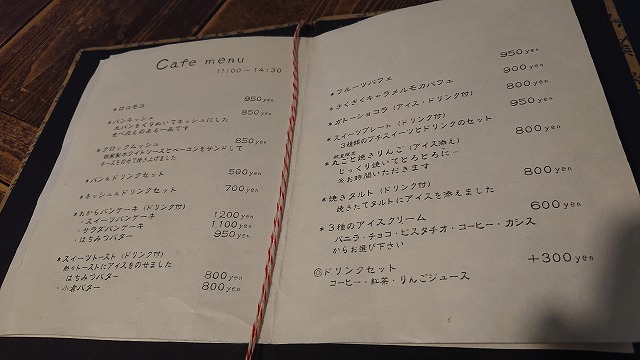 Cafe menu
11:00～14:30
*ロコモコ 950yen
*パンキッシュ 850yen
丸パンをくりぬいてキッシュにした
食べ応えのある一品です
*クロックムッシュ 850yen
自家製ホワイトソースとベーコンをサンドして
チーズをのせて焼き上げました
*パン&ドリンクセット 590yen
*キッシュ&ドリンクセット 700yen
*おからパンケーキ (ドリンク付)
・スイーツパンケーキ 1200yen
・サラダパンケーキ 1100yen
・はちみつバター 950yen
*スイーツトースト (ドリンク付)
熱々トーストにアイスをのせました
・はちみつバター 800yen
・小倉バター 800yen
*フルーツパフェ 950yen
*ざくざくキャラメルモカパフェ 900yen
*ガトーショコラ (アイス・ドリンク付) 800yen
*スイーツプレート (ドリンク付) 950yen
3種類のプチスイーツとドリンクのセット
数量限定
*丸ごと焼きりんご (アイス添え) 800yen
じっくり焼いてとろとろに…
※お時間いただきます
*焼きタルト (ドリンク付) 800yen
焼きたてタルトにアイスを添えました
*3種のアイスクリーム 600yen
バニラ・チョコ・ピスタチオ・コーヒー・カシス
からお選び下さい
◎ドリンクセット +300yen
コーヒー・紅茶・りんごジュース